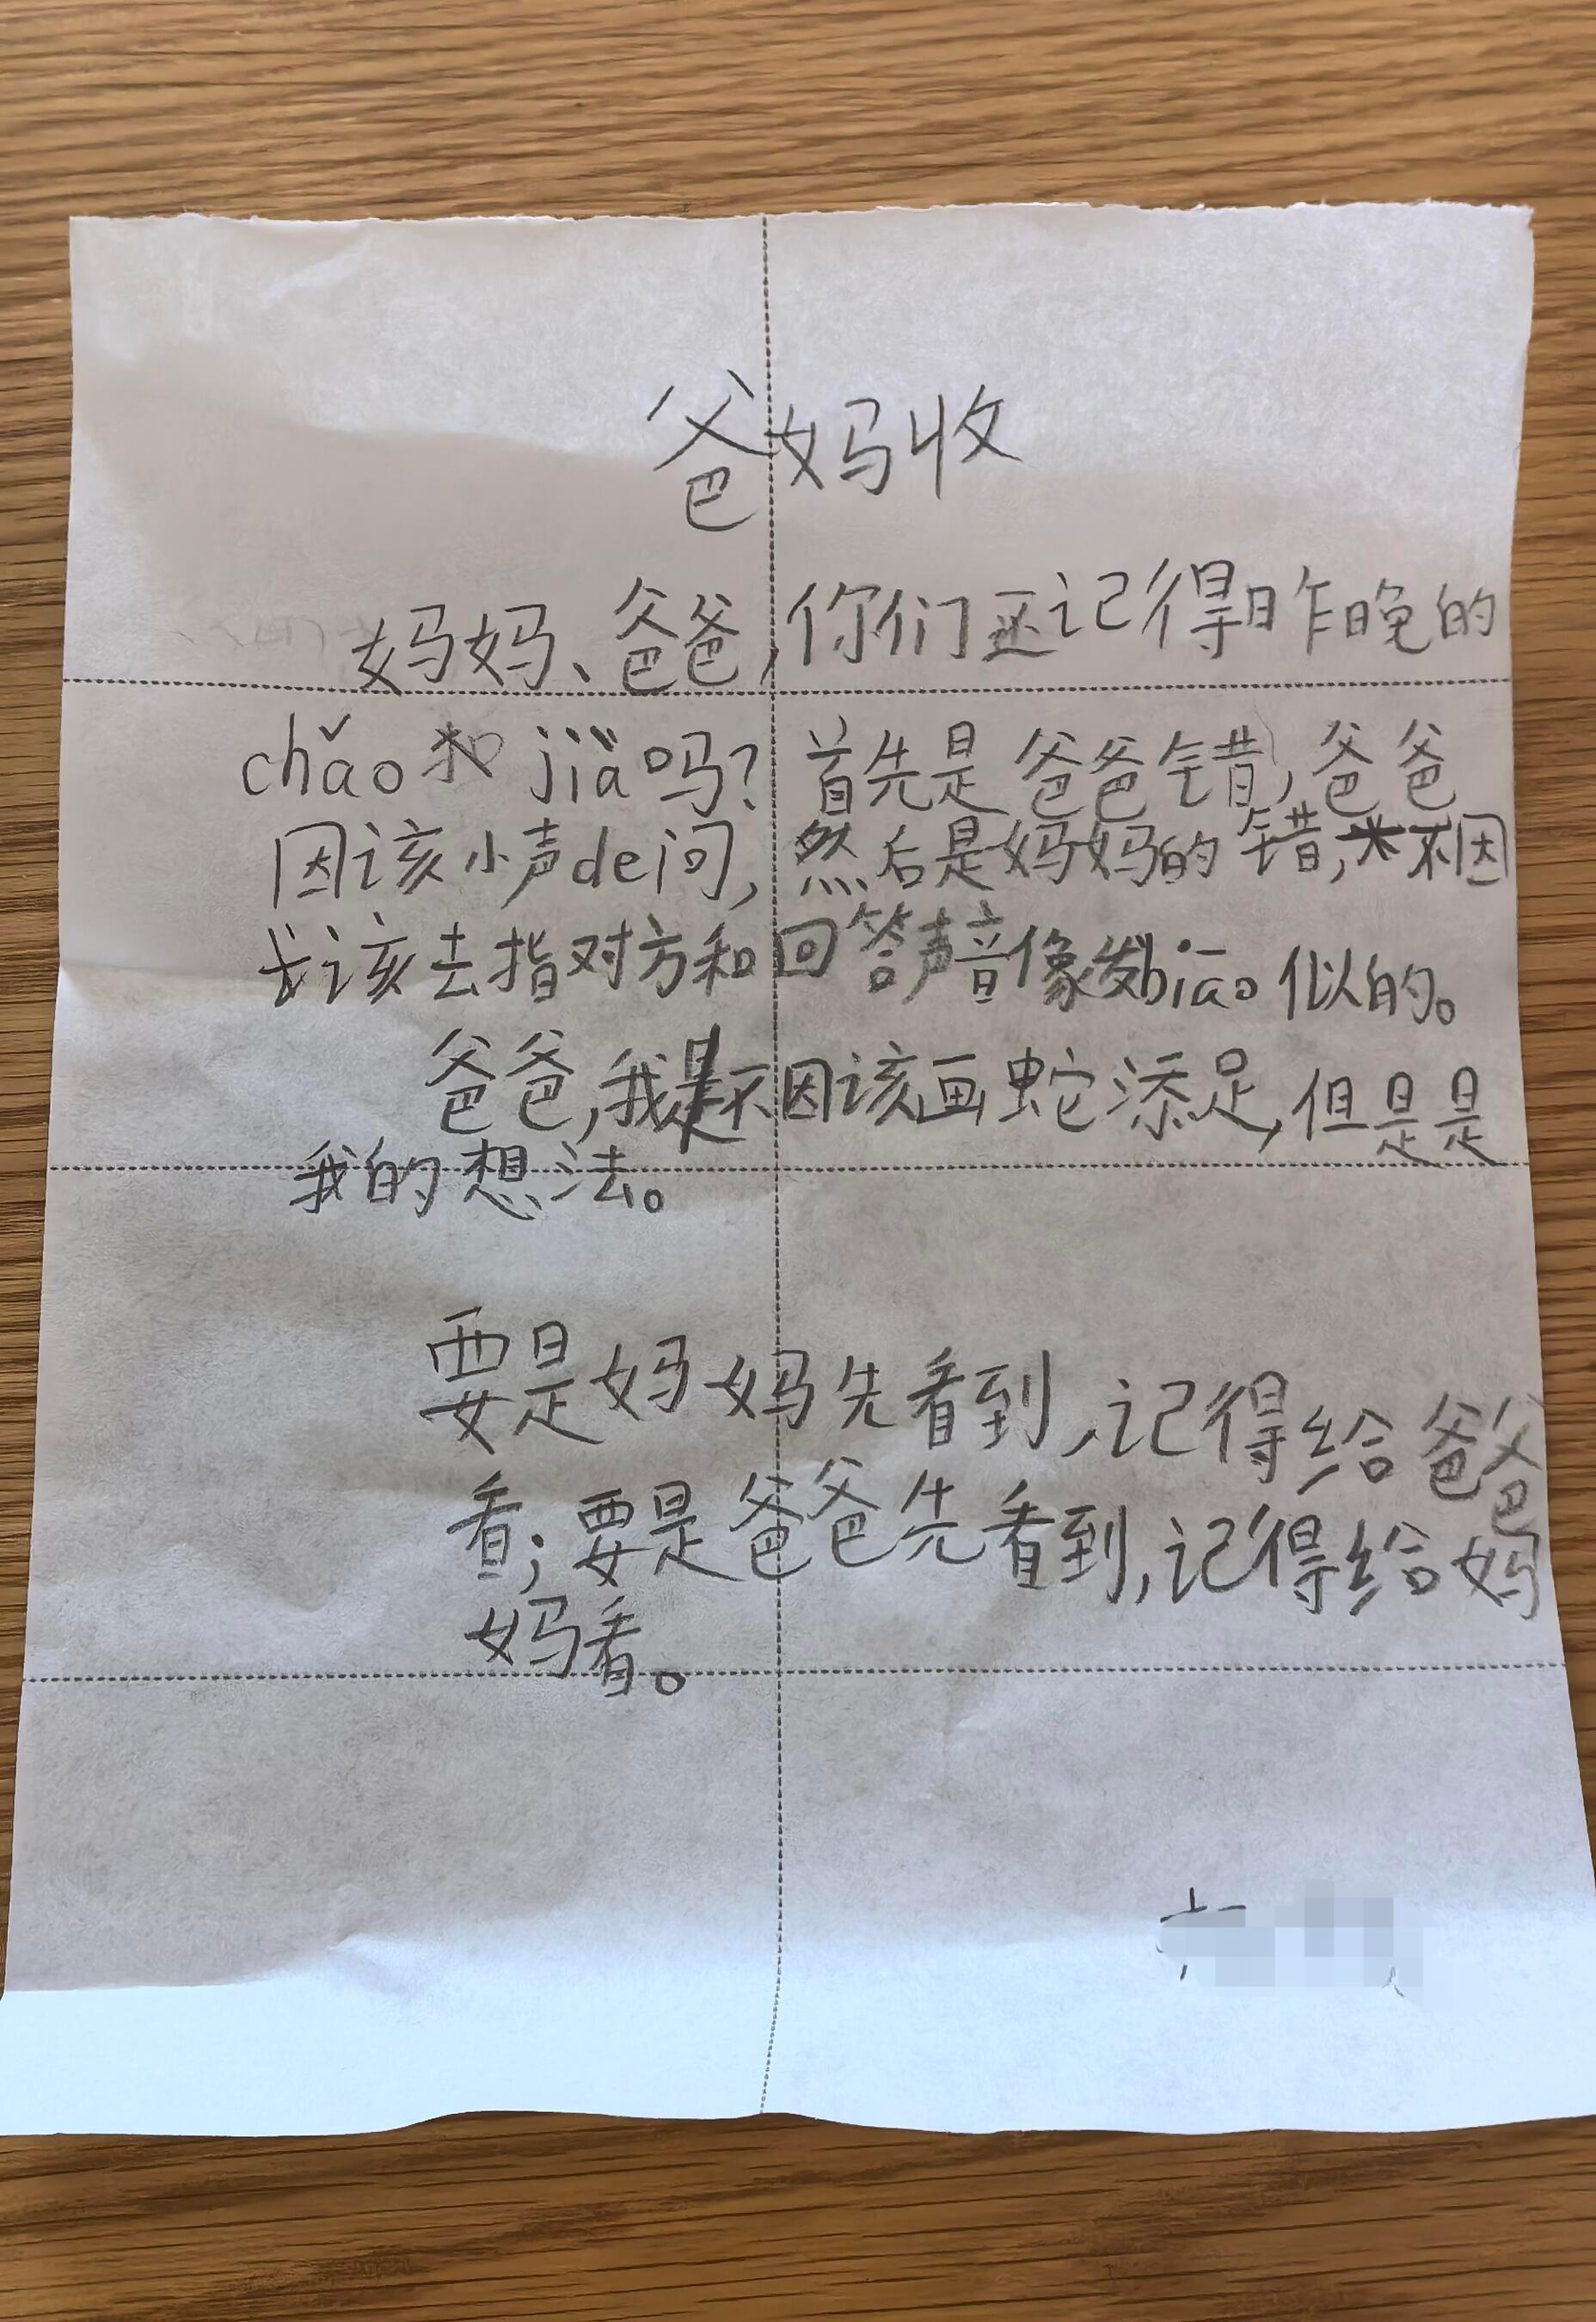 爸妈收
妈妈、爸爸,你们还记得昨晚的
chǎo和jià吗?首先是爸爸错,爸爸
因该小声de问,然后是妈妈的错,不因
该去指对方和回答声音像发biāo似的。
爸爸,我是不因该画蛇添足,但是是
我的想法。
要是妈妈先看到,记得给爸爸
看;要是爸爸先看到,记得给妈
妈看。